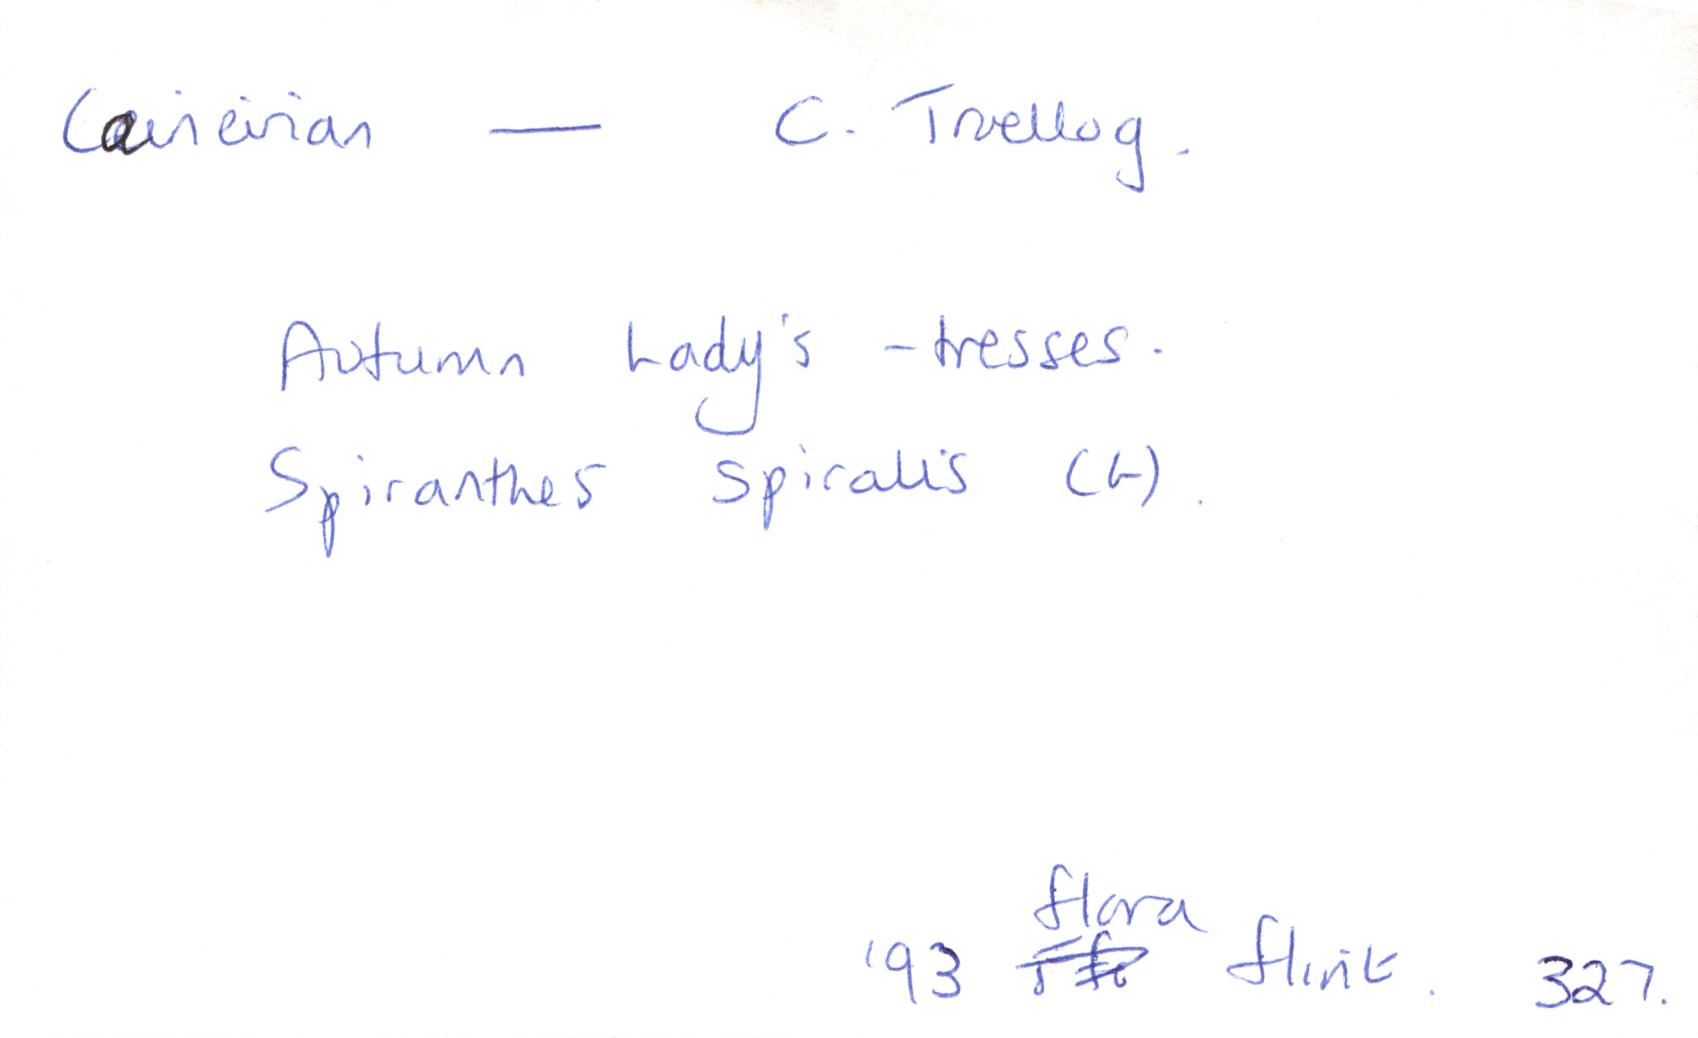 Caineirian — C. Troellog.
Autumn Lady's -tresses.
Spiranthes spiralis (L).
flora
'93 flint. 327.